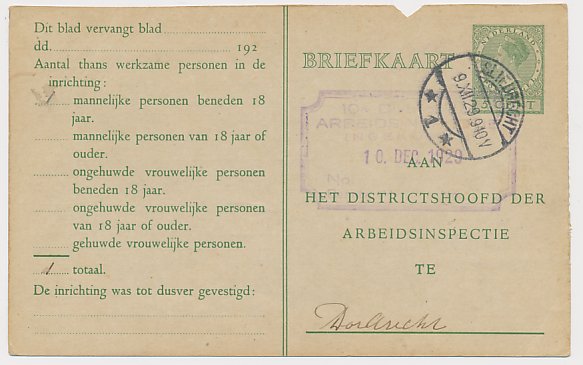 Dit blad vervangt blad
dd. 192
Aantal thans werkzame personen in de
inrichting:
1 mannelijke personen beneden 18
jaar.
mannelijke personen van 18 jaar of
ouder.
ongehuwde vrouwelijke personen
beneden 18 jaar.
ongehuwde vrouwelijke personen
van 18 jaar of ouder.
gehuwde vrouwelijke personen.
1 totaal.
De inrichting was tot dusver gevestigd:
BRIEFKAART
NEDERLAND
SLIEDRECHT
9.XII.29.9-10V
1
10 DEC. 1929
No.
AAN
HET DISTRICTSHOOFD DER
ARBEIDSINSPECTIE
TE
Dordrecht